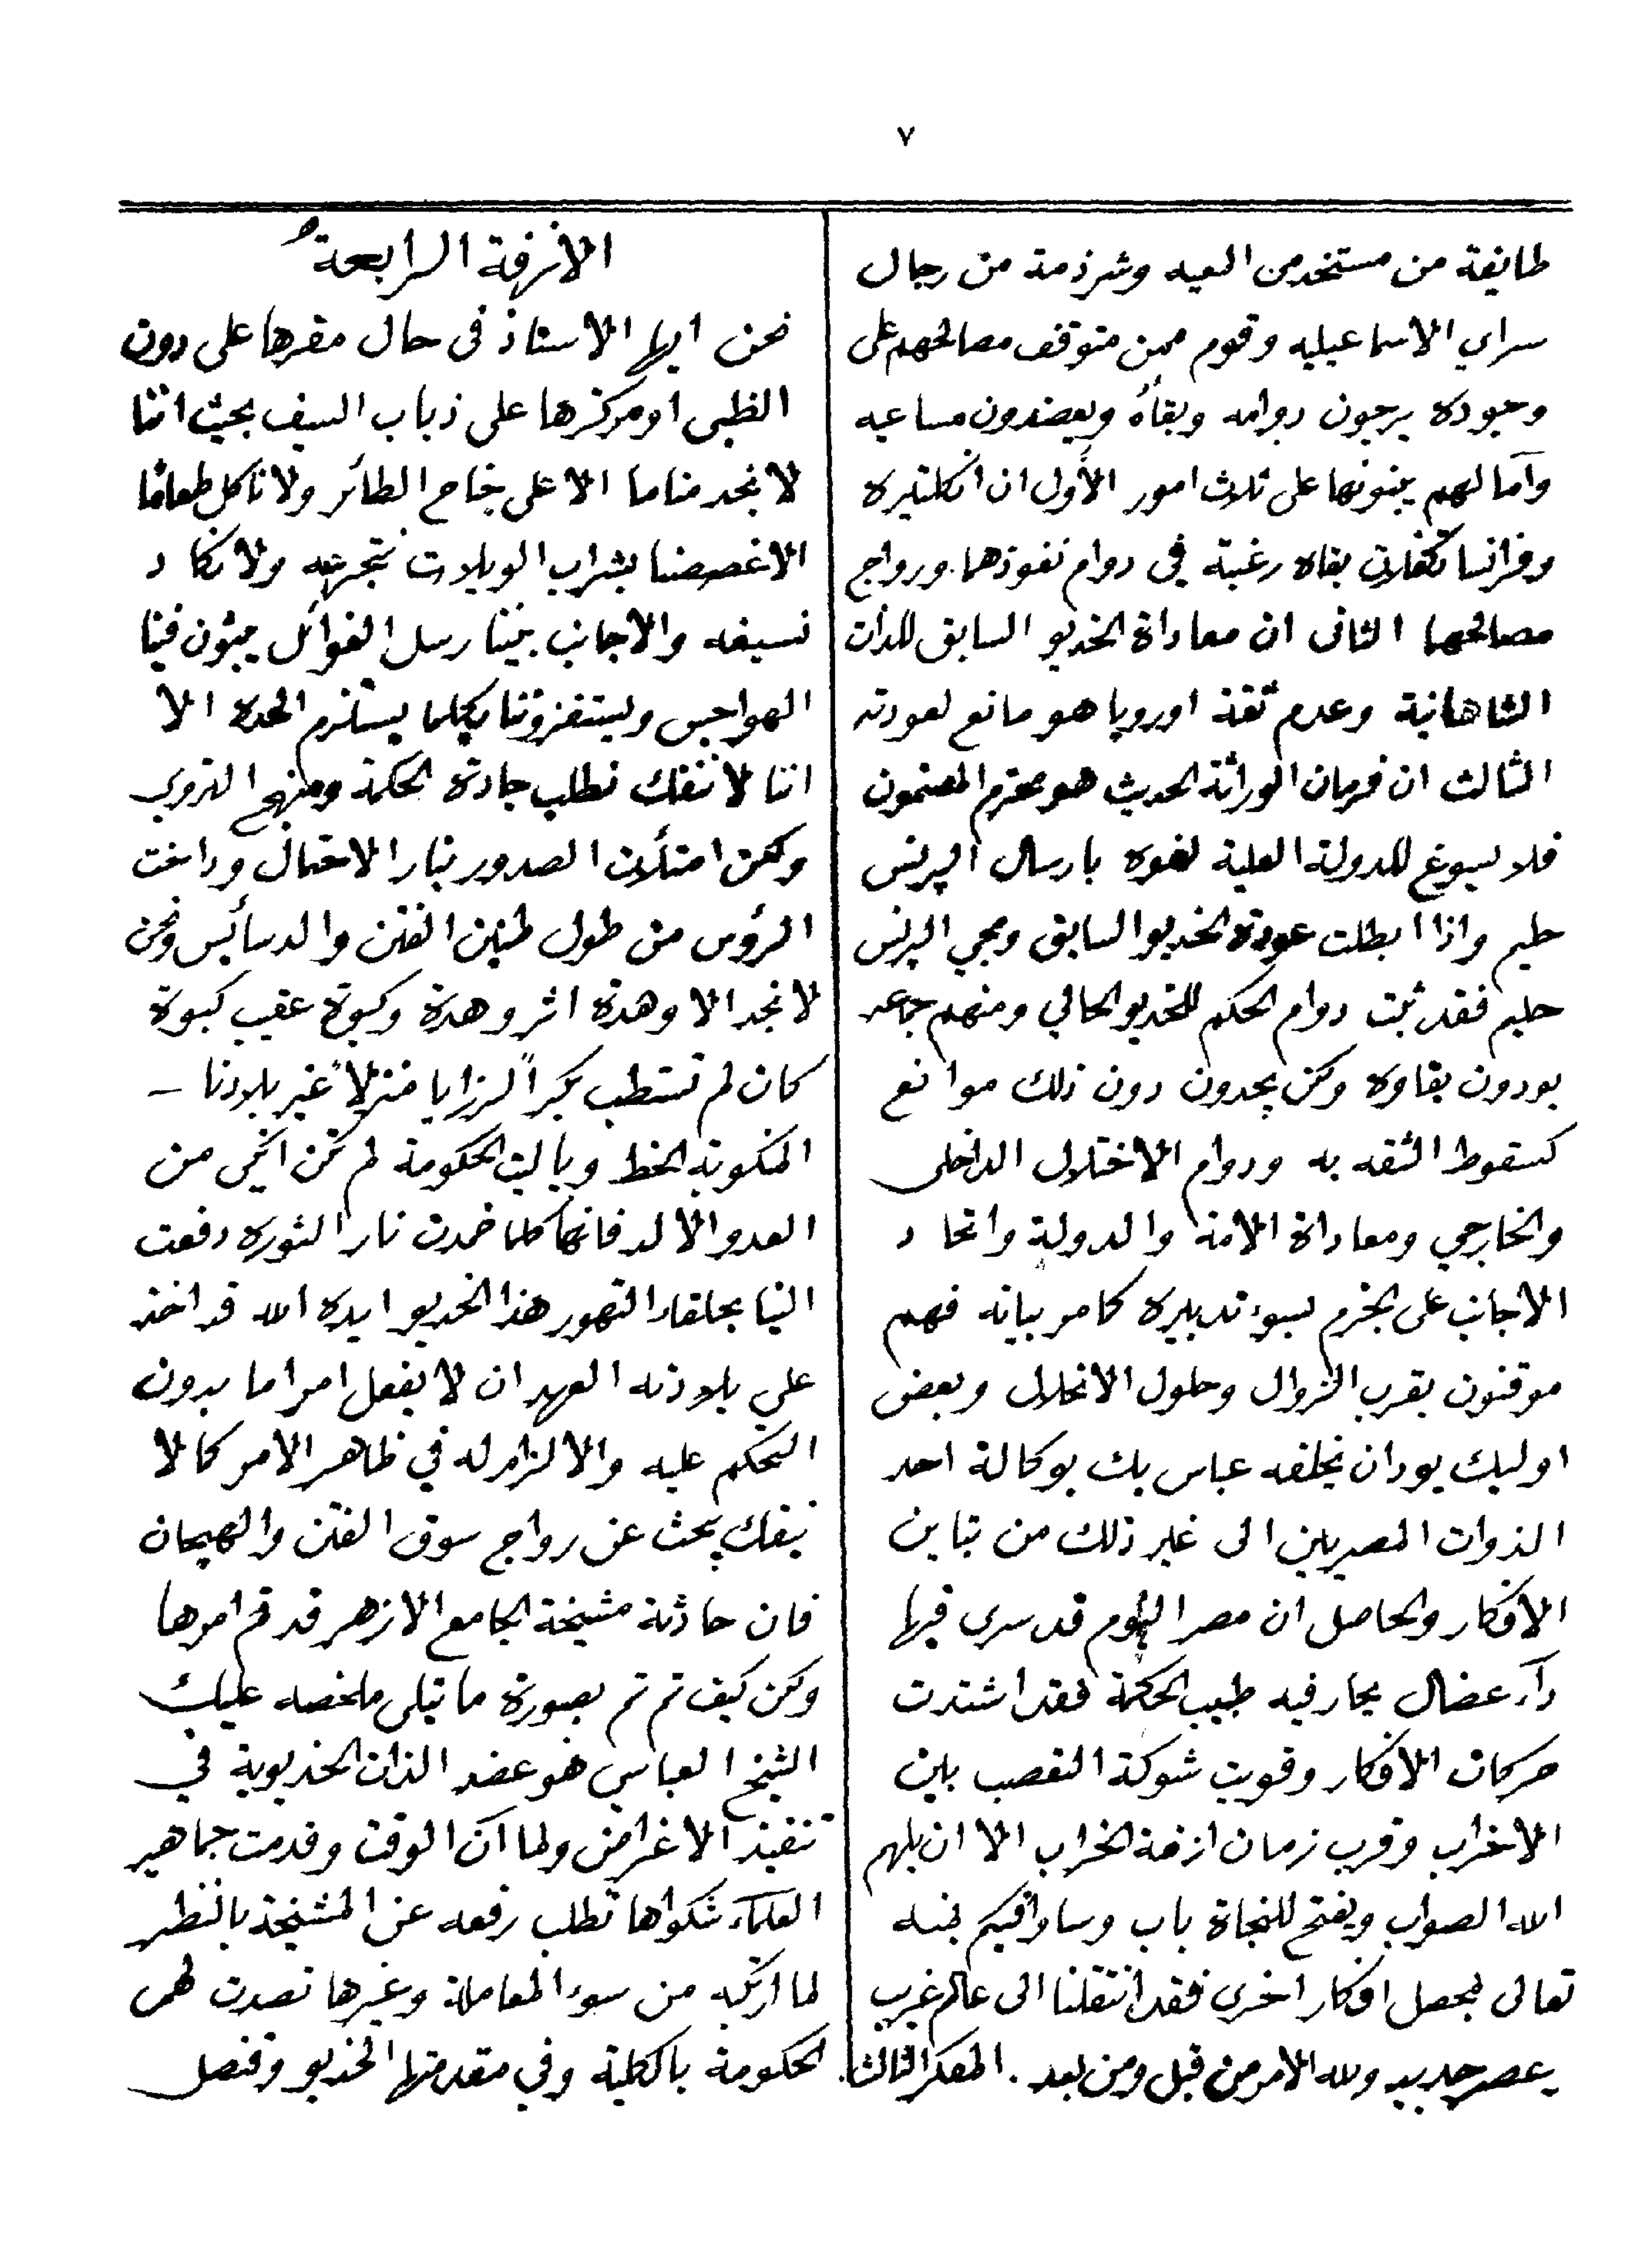 ٧
طايفة من مستخدمين المعيه وشرذمة من رجال
سراي الاسماعيليه وقوم ممن متوقف مصالحهم على
وجوده يرجون دوامه وبقاه ويعضدون مساعيه
وآمالهم يبنونها على ثلاث امور الأول ان انكلتيره
وفرانسا تكفلان بقاه رغبة في دوام نفوذهما ورواج
مصالحهما الثانى ان معاداة الخديو السابق للذات
الشاهانية وعدم ثقة اوروپا هو مانع لعودته
الثالث ان فرمان الوراثة الحديث هو محترم المضمون
فلا يسوغ للدولة العلية لغوه بارسال البرنس
حليم واذا ابطلت عودة الخديو السابق ومجي البرنس
حليم فقد ثبت دوام الحكم للخديو الحالي ومنهم جماعه
يودون بقاوه ولكن يجدون دون ذلك موانع
كسقوط الثقه به ودوام الاختلال الداخلى
والخارجي ومعاداة الامة والدولة واتحاد
الاجانب على الجزم بسوء تدبيره كما مر بيانه فهم
موقنون بقرب الزوال وحلول الانحلال وبعض
اوليك يود ان يخلفه عباس بك بوكالة احد
الذوات المصريين الى غير ذلك من تباين
الافكار والحاصل ان مصر اليوم قد سرى فيها
دآء عضال يحار فيه طبيب الحكمة فقد اشتدت
حركات الافكار وقويت شوكة التعصب بين
الاغراب وقرب زمان ازفة الخراب الا ان يلهم
الله الصواب ويفتح للنجاة باب وساوافيكم بمنه
تعالى بمحصل افكار اخرى فقد انتقلنا الى عالم غريب
وعصر جديد ولله الامر من قبل ومن بعد . المفكر الثالث.
الازفة الرابعة
نحن ايها الاستاذ فى حال مقرها على دون
الظبى او مركزها على ذباب السيف بحيث اننا
لا نجد مناما الا على جناح الطائر ولا ناكل طعامًا
الا غصصنا بشراب الويلات نتجرعه ولا نكاد
نسيغه والاجانب بيننا رسل الغوائل يبثون فينا
الهواجس ويستفزوننا بكلما يستلزم الحدة الا
اننا لا ننفك نطلب جادة الحكمة ومنهج التروي
ولكن امتلأت الصدور بنار الاحتمال وداخت
الرؤس من طول طنين الفتن والدسائيس ونحن
لا نجد الا وهدة اثر وهدة وكبوة عقيب كبوة
كان لم تستطب بكر الرزايا منزلاً غير بلادنا –
المنكوبة الحظ وياليت الحكومة لم تكن انكى من
العدو الالد فانها كلما خمدت نار الثوره دفعت
الينا بحلقاء التهور هذا الخديو ايده الله قد اخذ
على بلادته العهد ان لا يفعل امرا ما بدون
التحكم عليه والالزام له في ظاهر الامر كما لا
ينفك يبحث عن رواج سوق الفتن والهيجان
فان حادثة مشيخة الجامع الازهر قد تم امرها
ولكن كيف تم تم بصورة ما تيلى ملخصه عليك
الشيخ العباسي هو عضد الذات الخديوية في
تنفيذ الاغراض ولما آن الوقت وقدمت جماهير
العلمآء شكواها تطلب رفعه عن المشيخة بالنظر
لما ارتكبه من سوء المعاملة وغيرها تصدت لهم
الحكومة بالكلية وفي مقدمتها الخديو وقنصل